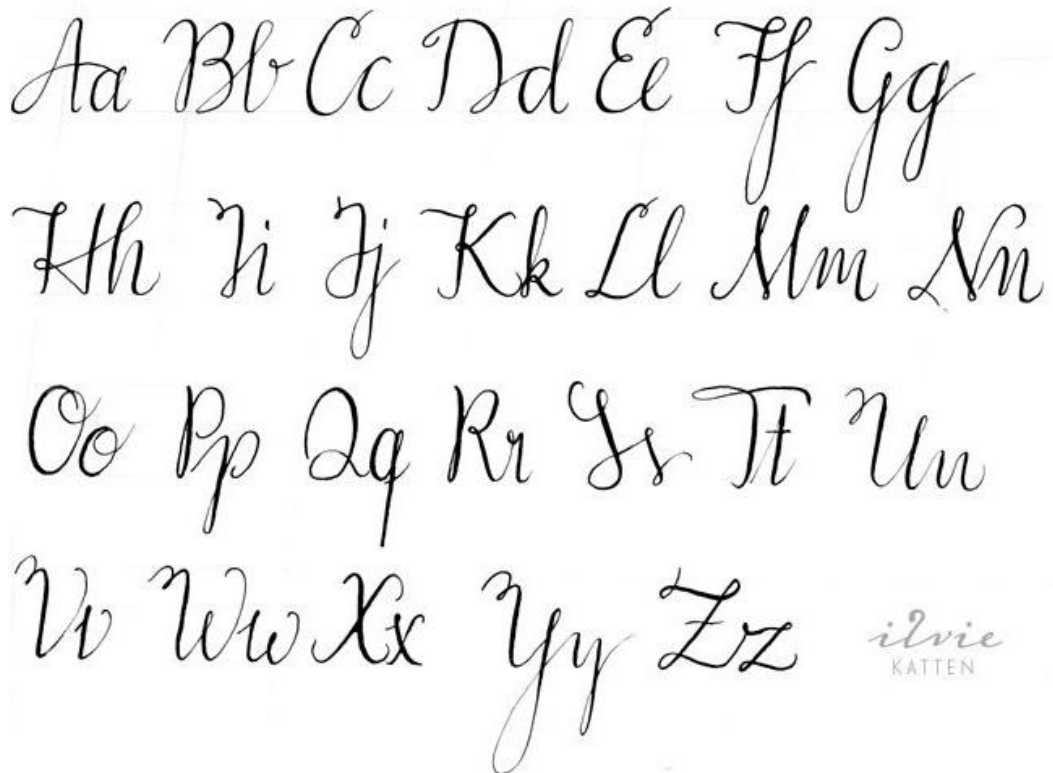 Aa Bb Cc Dd Ee Ff Gg
Hh Ii Jj Kk Ll Mm Nn
Oo Pp Qq Rr Ss Tt Uu
Vv Ww Xx Yy Zz
ilvie
KATTEN